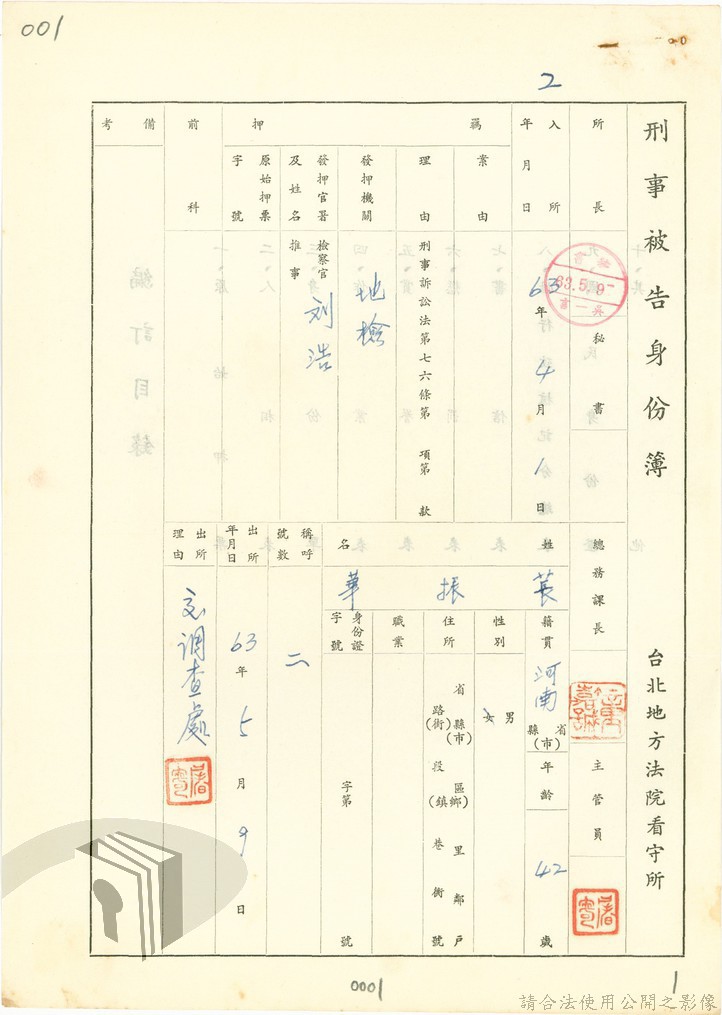 001
2
刑事被告身份簿
台北地方法院看守所
所長
秘書
總務課長
主管員
63.5.9
入所
年月日
63年4月1日
為
押
案由
理由
刑事訴訟法第七六條第 項第 款
發押機關
地檢
發押官署及姓名
檢察官
推事
刘浩
原始押票
字號
前科
備考
姓名
振華
籍貫
河南
省
縣(市)
年齡
42
歲
性別
男
女
住所
省縣(市)區(鄉)里鄰戶
路(街)段(鎮)巷衖號
職業
身份證
字號
字第
號
稱呼
號數
二
出所
年月日
63年5月9日
出所
理由
交調查處
編訂目錄
0001
1
請合法使用公開之影像